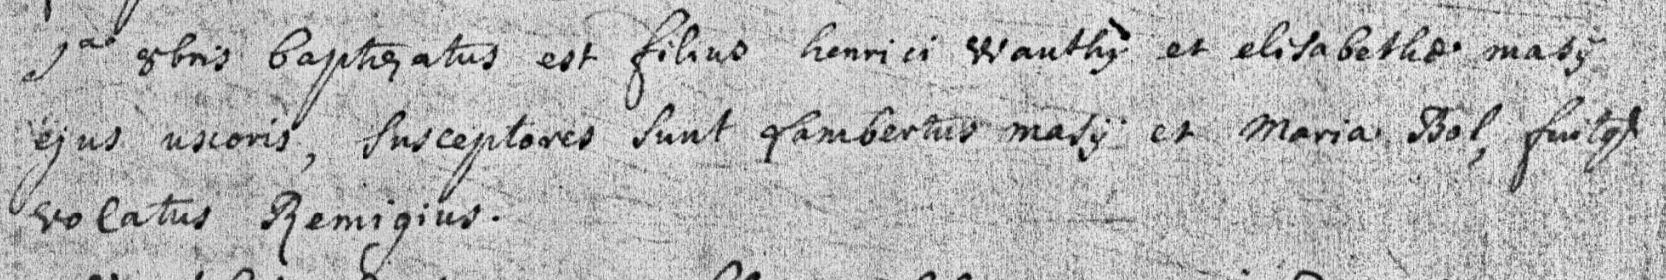 1ª 8bris baptizatus est filius henrici Wauthÿ et elisabethæ masÿ
ejus uxoris, Susceptores Sunt Lambertus masÿ et Maria Bol, fuitq
vocatus Remigius.